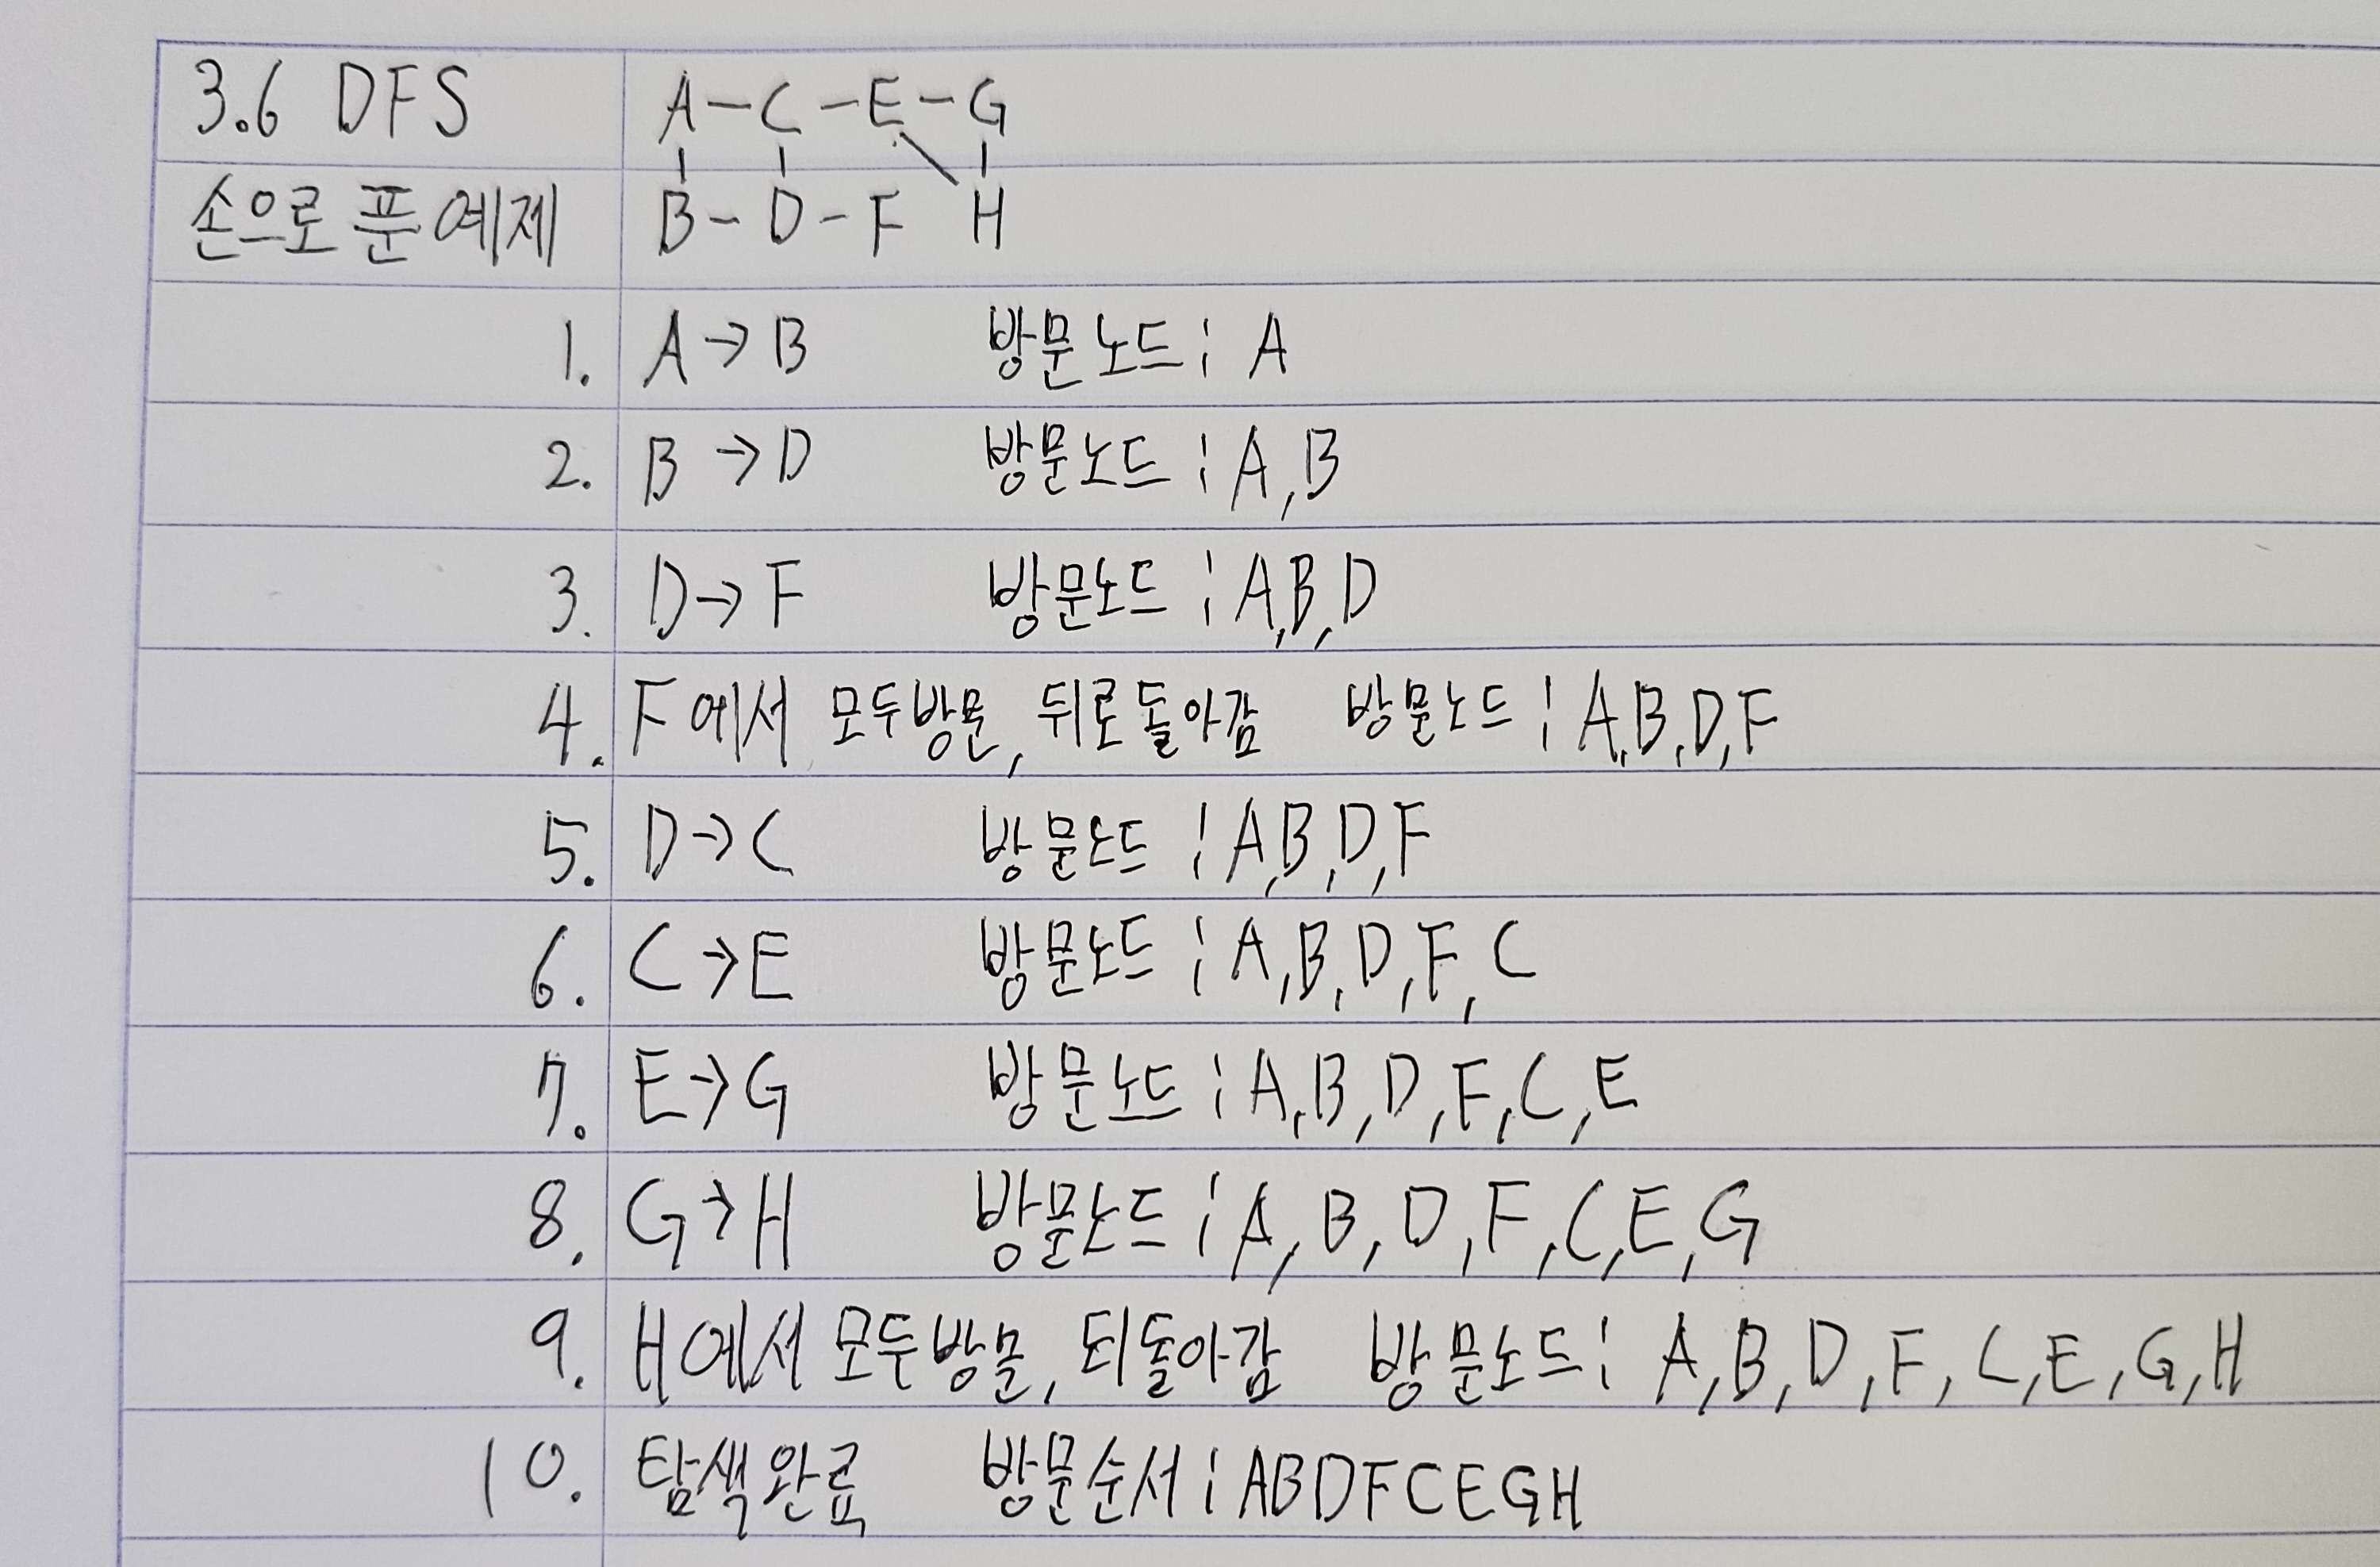 3.6 DFS A-C-E-G
손으로 푼 예제 B-D-F H
1. A→B 방문노드: A
2. B→D 방문노드: A,B
3. D→F 방문노드: A,B,D
4. F에서 모두방문, 뒤로돌아감 방문노드: A,B,D,F
5. D→C 방문노드: A,B,D,F
6. C→E 방문노드: A,B,D,F,C
7. E→G 방문노드: A,B,D,F,C,E
8. G→H 방문노드: A,B,D,F,C,E,G
9. H에서 모두방문, 되돌아감 방문노드: A,B,D,F,C,E,G,H
10. 탐색완료 방문순서: ABDFCEGH